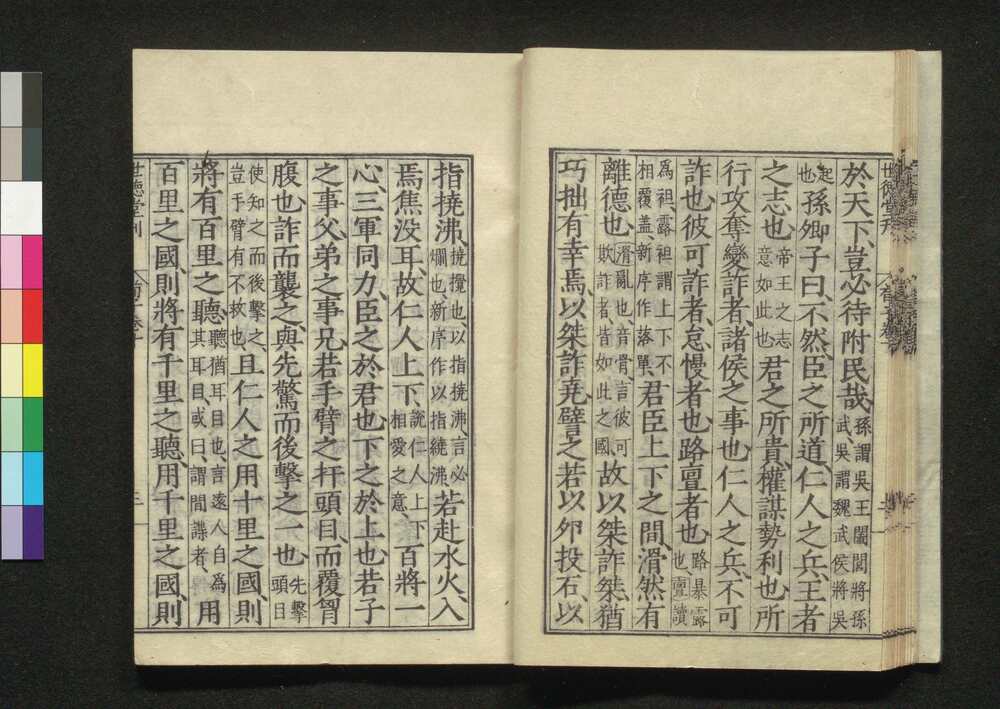 於天下、豈必待附民哉、孫謂吳王闔閭將孫武、吳謂魏武侯將吳
起也孫卿子曰、不然、臣之所道、仁人之兵、王者
之志也、帝王之志意如此也君之所貴、權謀勢利也、所
行攻奪變詐者、諸侯之事也、仁人之兵、不可
詐也、彼可詐者、怠慢者也、路亶者也、路暴露也亶讀
爲袒、露袒謂上下不相覆盖、新序作落單、君臣上下之間、滑然有
離德也、滑亂也、音骨、言彼可欺詐者皆如此之國、故以桀詐桀、猶
巧拙有幸焉、以桀詐堯、譬之若以卵投石、以
指撓沸、撓攪也、以指撓沸、言必爛也、新序作以指繞沸、若赴水火、入
焉焦没耳、故仁人上下、說仁人上下相愛之意百將一
心、三軍同力、臣之於君也、下之於上也、若子
之事父、弟之事兄、若手臂之扞頭目、而覆胷
腹也、詐而襲之、與先驚而後擊之、一也、先擊頭目
使知之而後擊之、豈手臂有不救也、且仁人之用十里之國、則
將有百里之聽、聽猶耳目也、言遠人自爲其耳目、或曰、謂間諜者、用
百里之國、則將有千里之聽、用千里之國、則
世德堂刊